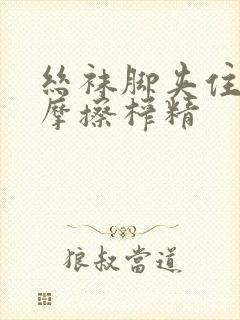 丝袜脚夹住
摩擦榨精
狼叔當道